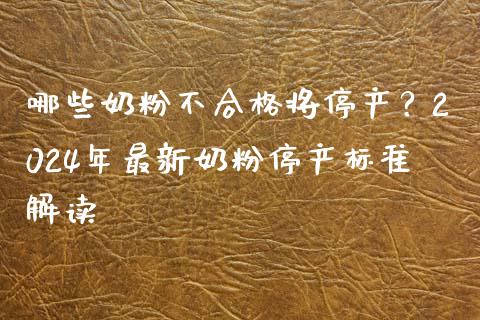 哪些奶粉不合格将停产？2
024年最新奶粉停产标准
解读